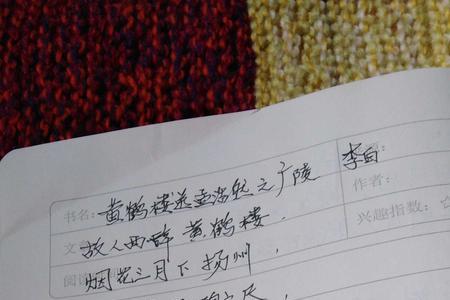 书名：黄鹤楼送孟浩然之广陵 李白
作者：
故人西辞黄鹤楼．
兴趣指数：☆
烟花三月下扬州，